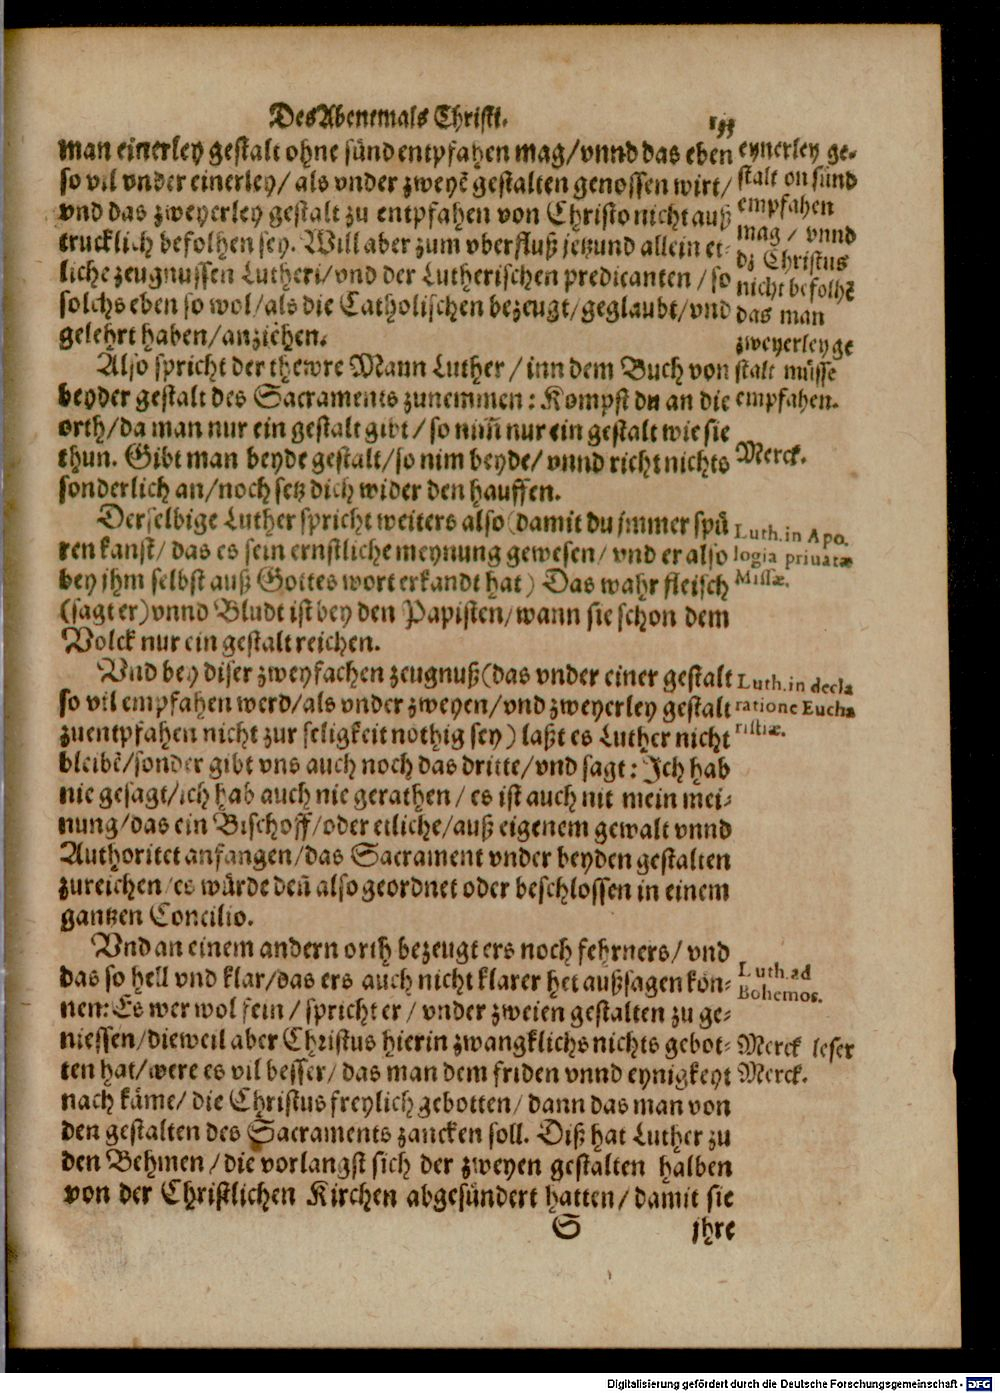 Des Abentmals Christi.
man einerley gestalt ohne sünd entpfahen mag/vnnd das eben
so vil vnder einerley/ als vnder zweyẽ gestalten genossen wirt/
vnd das zweyerley gestalt zu entpfahen von Christo nicht auß
trucklich befolhen sey. Will aber zum vberfluß jetzund allein et-
liche zeugnussen Lutheri/vnd der Lutherischen predicanten / so
solchs eben so wol/als die Catholischen bezeugt/geglaubt/vnd
gelehrt haben/anziehen.
eynerley ge-
stalt on sünd
empfahen
mag / vnnd
dz Christus
nicht befolhẽ
das man
zweyerley ge
stalt müsse
empfahen.
Also spricht der thewre Mann Luther / inn dem Buch von
beyder gestalt des Sacraments zunemmen: Kompst du an die
orth/da man nur ein gestalt gibt / so nim̃ nur ein gestalt wie sie
thun. Gibt man beyde gestalt/so nim beyde/ vnnd richt nichts
sonderlich an/noch setz dich wider den hauffen.
Merck.
Derselbige Luther spricht weiters also (damit du jmmer spü
ren kanst/ das es sein ernstliche meynung gewesen/ vnd er also
bey jhm selbst auß Gottes wort erkandt hat) Das wahr fleisch
(sagt er) vnnd Bludt ist bey den Papisten/wann sie schon dem
Volck nur ein gestalt reichen.
Luth. in Apo.
logia priuatæ
Missæ.
Vnd bey diser zweyfachen zeugnuß (das vnder einer gestalt
so vil empfahen werd/als vnder zweyen/vnd zweyerley gestalt
zuentpfahen nicht zur seligkeit nothig sey) laßt es Luther nicht
bleibẽ/sonder gibt vns auch noch das dritte/vnd sagt: Ich hab
nie gesagt/ich hab auch nie gerathen / es ist auch nit mein mei-
nung/das ein Bischoff/oder etliche/auß eigenem gewalt vnnd
Authoritet anfangen/das Sacrament vnder beyden gestalten
zureichen/es würde deñ also geordnet oder beschlossen in einem
gantzen Concilio.
Luth. in decla
ratione Eucha
ristiæ.
Vnd an einem andern orth bezeugt ers noch fehrners/ vnd
das so hell vnd klar/das ers auch nicht klarer het außsagen kön-
nen: Es wer wol fein / spricht er / vnder zweien gestalten zu ge-
niessen/dieweil aber Christus hierin zwangklichs nichts gebot-
ten hat/were es vil besser/ das man dem friden vnnd eynigkeyt
nach käme/ die Christus freylich gebotten/ dann das man von
den gestalten des Sacraments zancken soll. Diß hat Luther zu
den Behmen / die vorlangst sich der zweyen gestalten halben
von der Christlichen Kirchen abgesündert hatten/ damit sie
Luth. ad
Bohemos.
Merck leser
Merck.
S
jhre
Digitalisierung gefördert durch die Deutsche Forschungsgemeinschaft - DFG